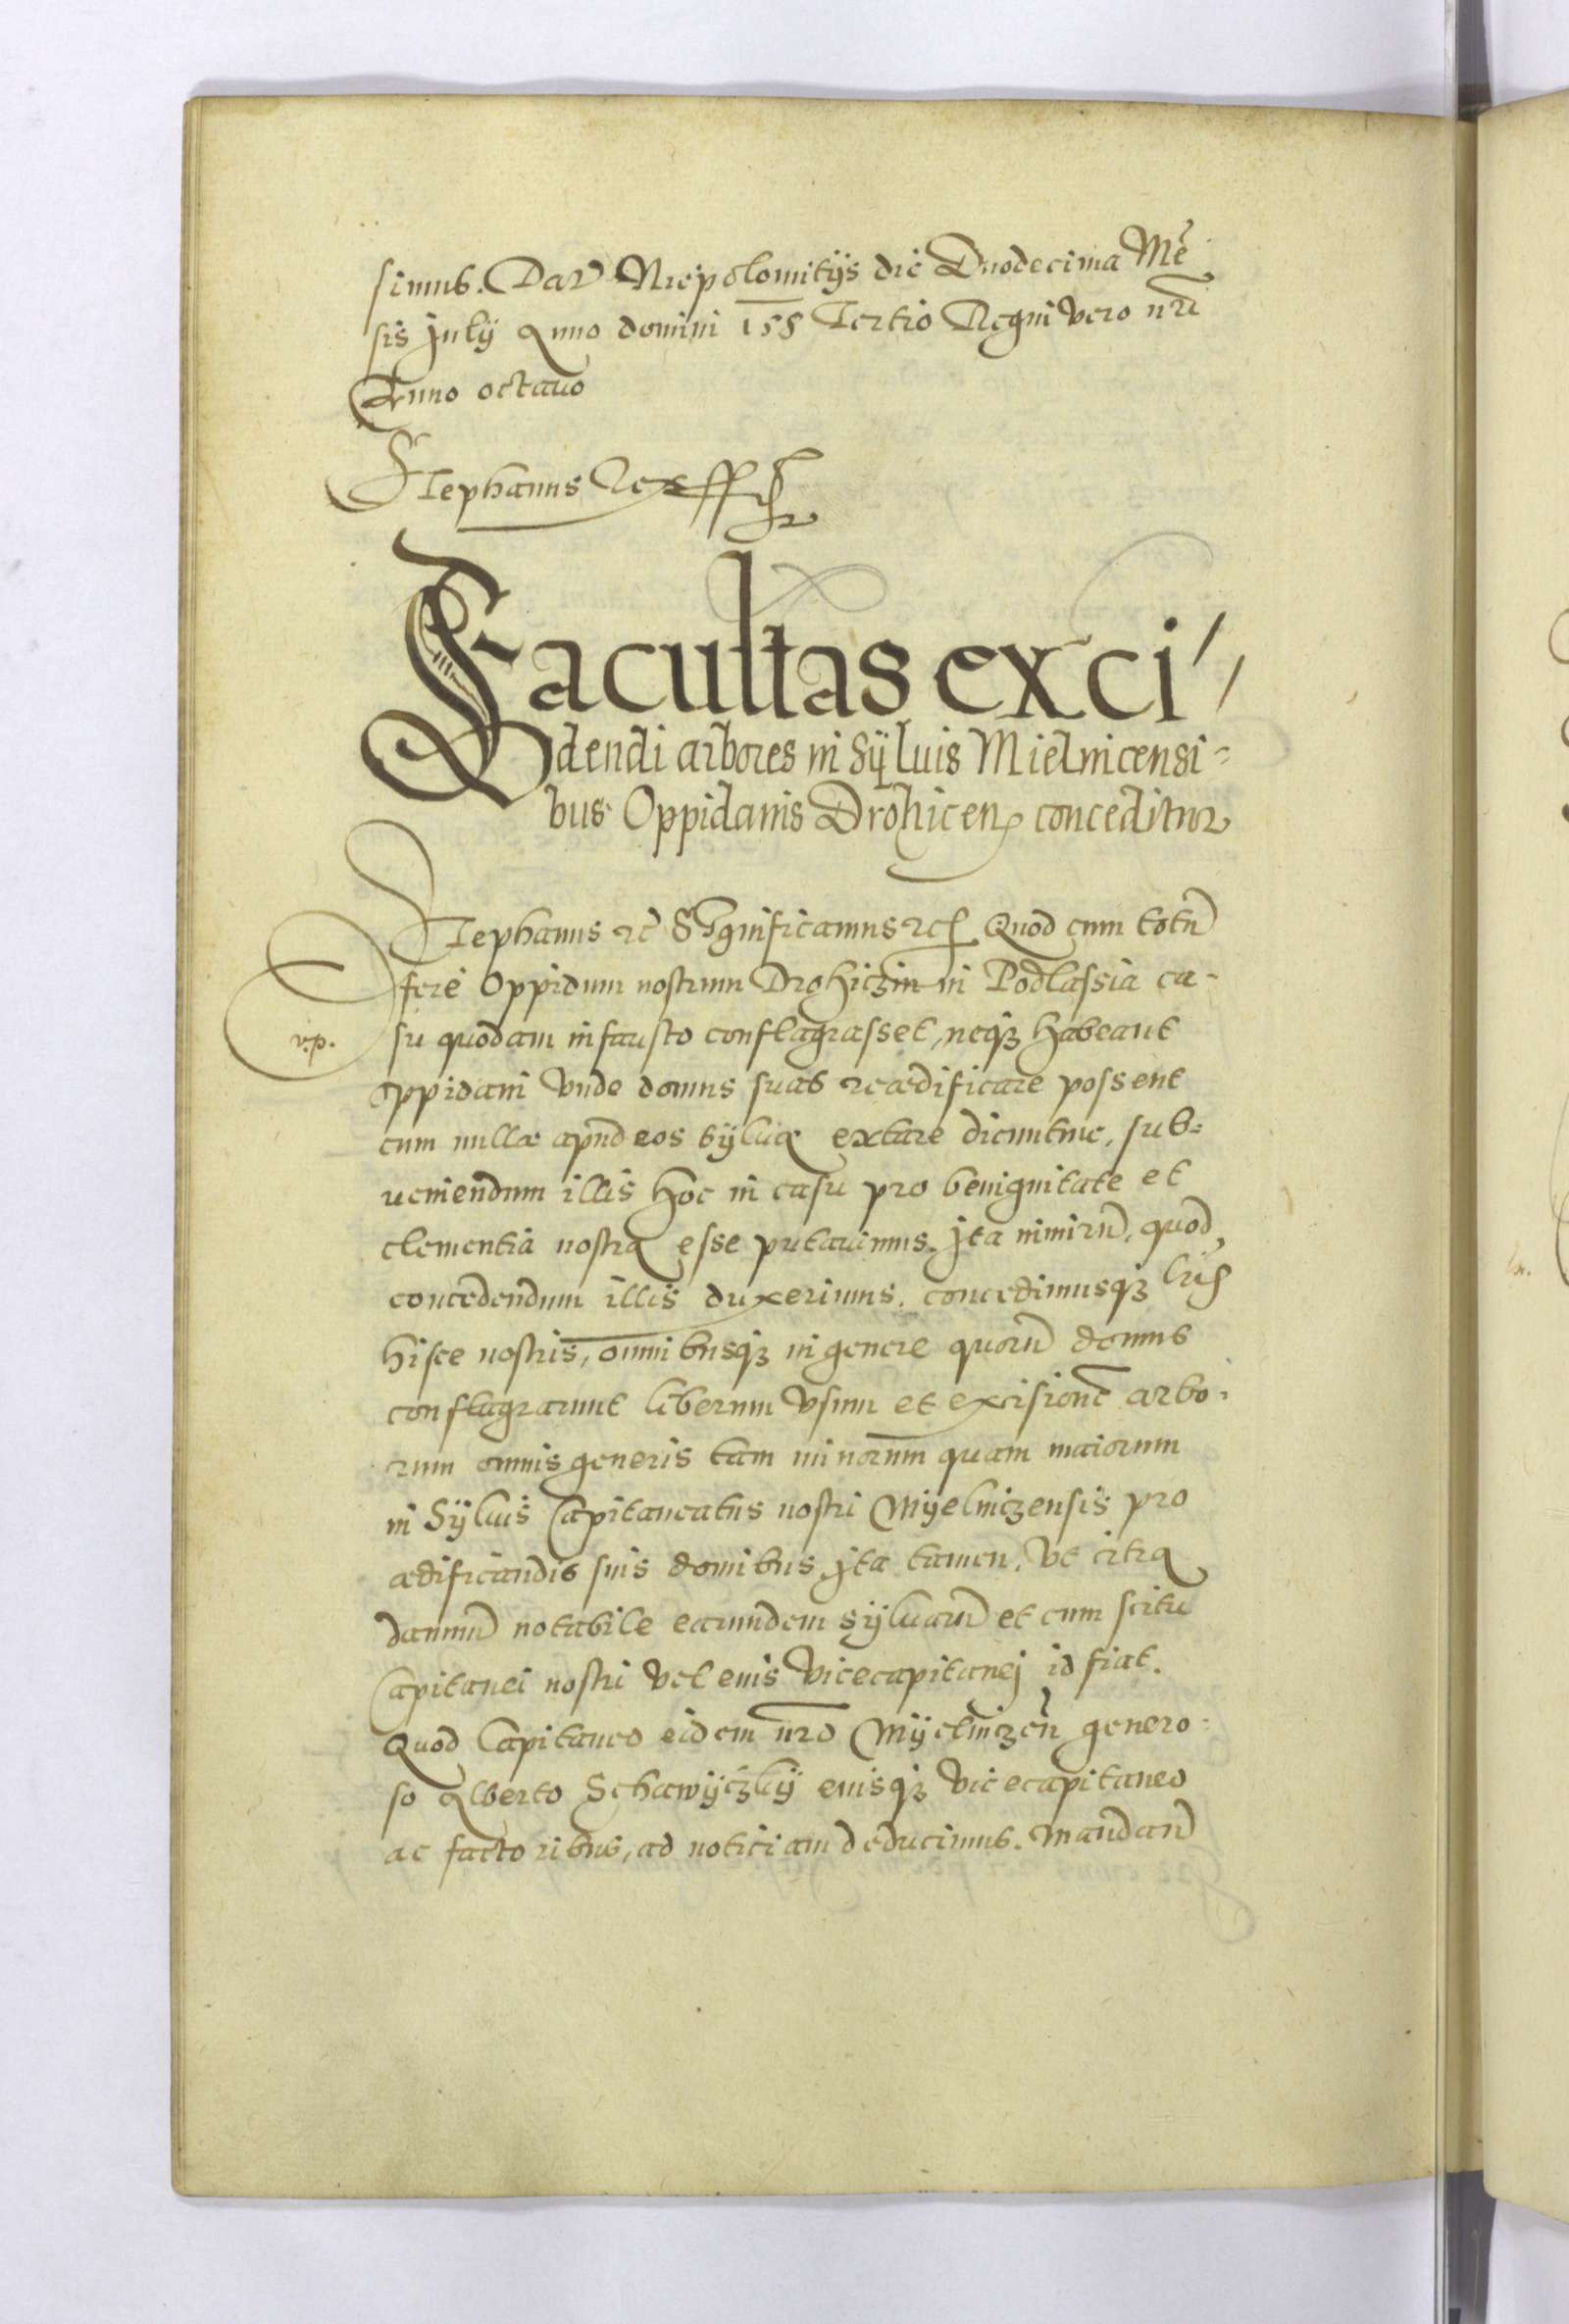 simus. Dat Niepolomitijs die Duodecima Mẽ
sis Julij Anno domini 158 Tertio Regni vero nrĩ
Anno octauo
Stephanus Rex
Facultas exci
dendi arbores in Sÿluis Mielnicensi-
bus Oppidanis Drohicen conceditur
Stephanus etc Significamus etc Quod cum totũ
fere Oppidum nostrum Drohiczin in Podlassia ca-
v.p.
su quodam infausto conflagrasset, neqȝ habeant
oppidani vnde domus suas reædificare possent
cum nullæ apud eos sÿluæ extare dicuntur, sub-
ueniendum illis hoc in casu pro benignitate et
clementia nostra esse putauimus. Jta nimirũ, quod
concedendum illis duxerimus. concedimusqȝ lr̃is
hisce nostris, omnibusqȝ in genere quorũ domus
conflagrarunt liberum vsum et excisionẽ arbo-
rum omnis generis tam minorum quam maiorum
in Sÿluis Capitaneatus nostri Mÿelniczensis pro
ædificandis suis domibus Jta tamen, vt citra
damnũ notabile earundem sÿluarũ et cum scitu
Capitanei nostri vel eius Vicecapitanej id fiat.
Quod Capitaneo eidem nrõ Mÿelniczeñ genero-
so Alberto Schawÿczkÿ eiusqȝ Vicecapitaneo
ac factoribus, ad noticiam deducimus. Mandañ